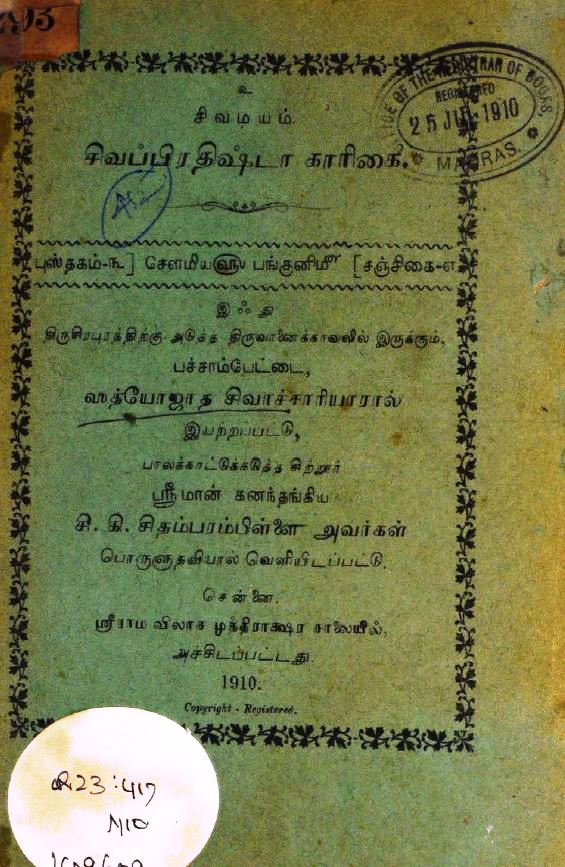 293
உ
சிவமயம்.
சிவப்பிரதிஷ்டா காரிகை.
OFFICE OF THE REGISTRAR OF BOOKS,
REGISTERED
25 JUL 1910
MADRAS.
புஸ்தகம்-௩] சௌமிய௵ பங்குனிமீ௴ [சஞ்சிகை-எ
இஃது
திருசிரபுரத்திற்கு அடுத்த திருவானைக்காவலில் இருக்கும்,
பச்சாம்பேட்டை,
ஸத்யோஜாத சிவாச்சாரியாரால்
இயற்றப்பட்டு,
பாலக்காட்டுக்கடுத்த சிற்றூர்
ஸ்ரீமான் கனந்தங்கிய
சி. கி. சிதம்பரம்பிள்ளை அவர்கள்
பொருளுதவியால் வெளியிடப்பட்டு.
சென்னை.
ஸ்ரீராம விலாச முத்திராக்ஷர சாலையில்,
அச்சிடப்பட்டது.
1910.
Copyright - Registered.
R23:417
N10